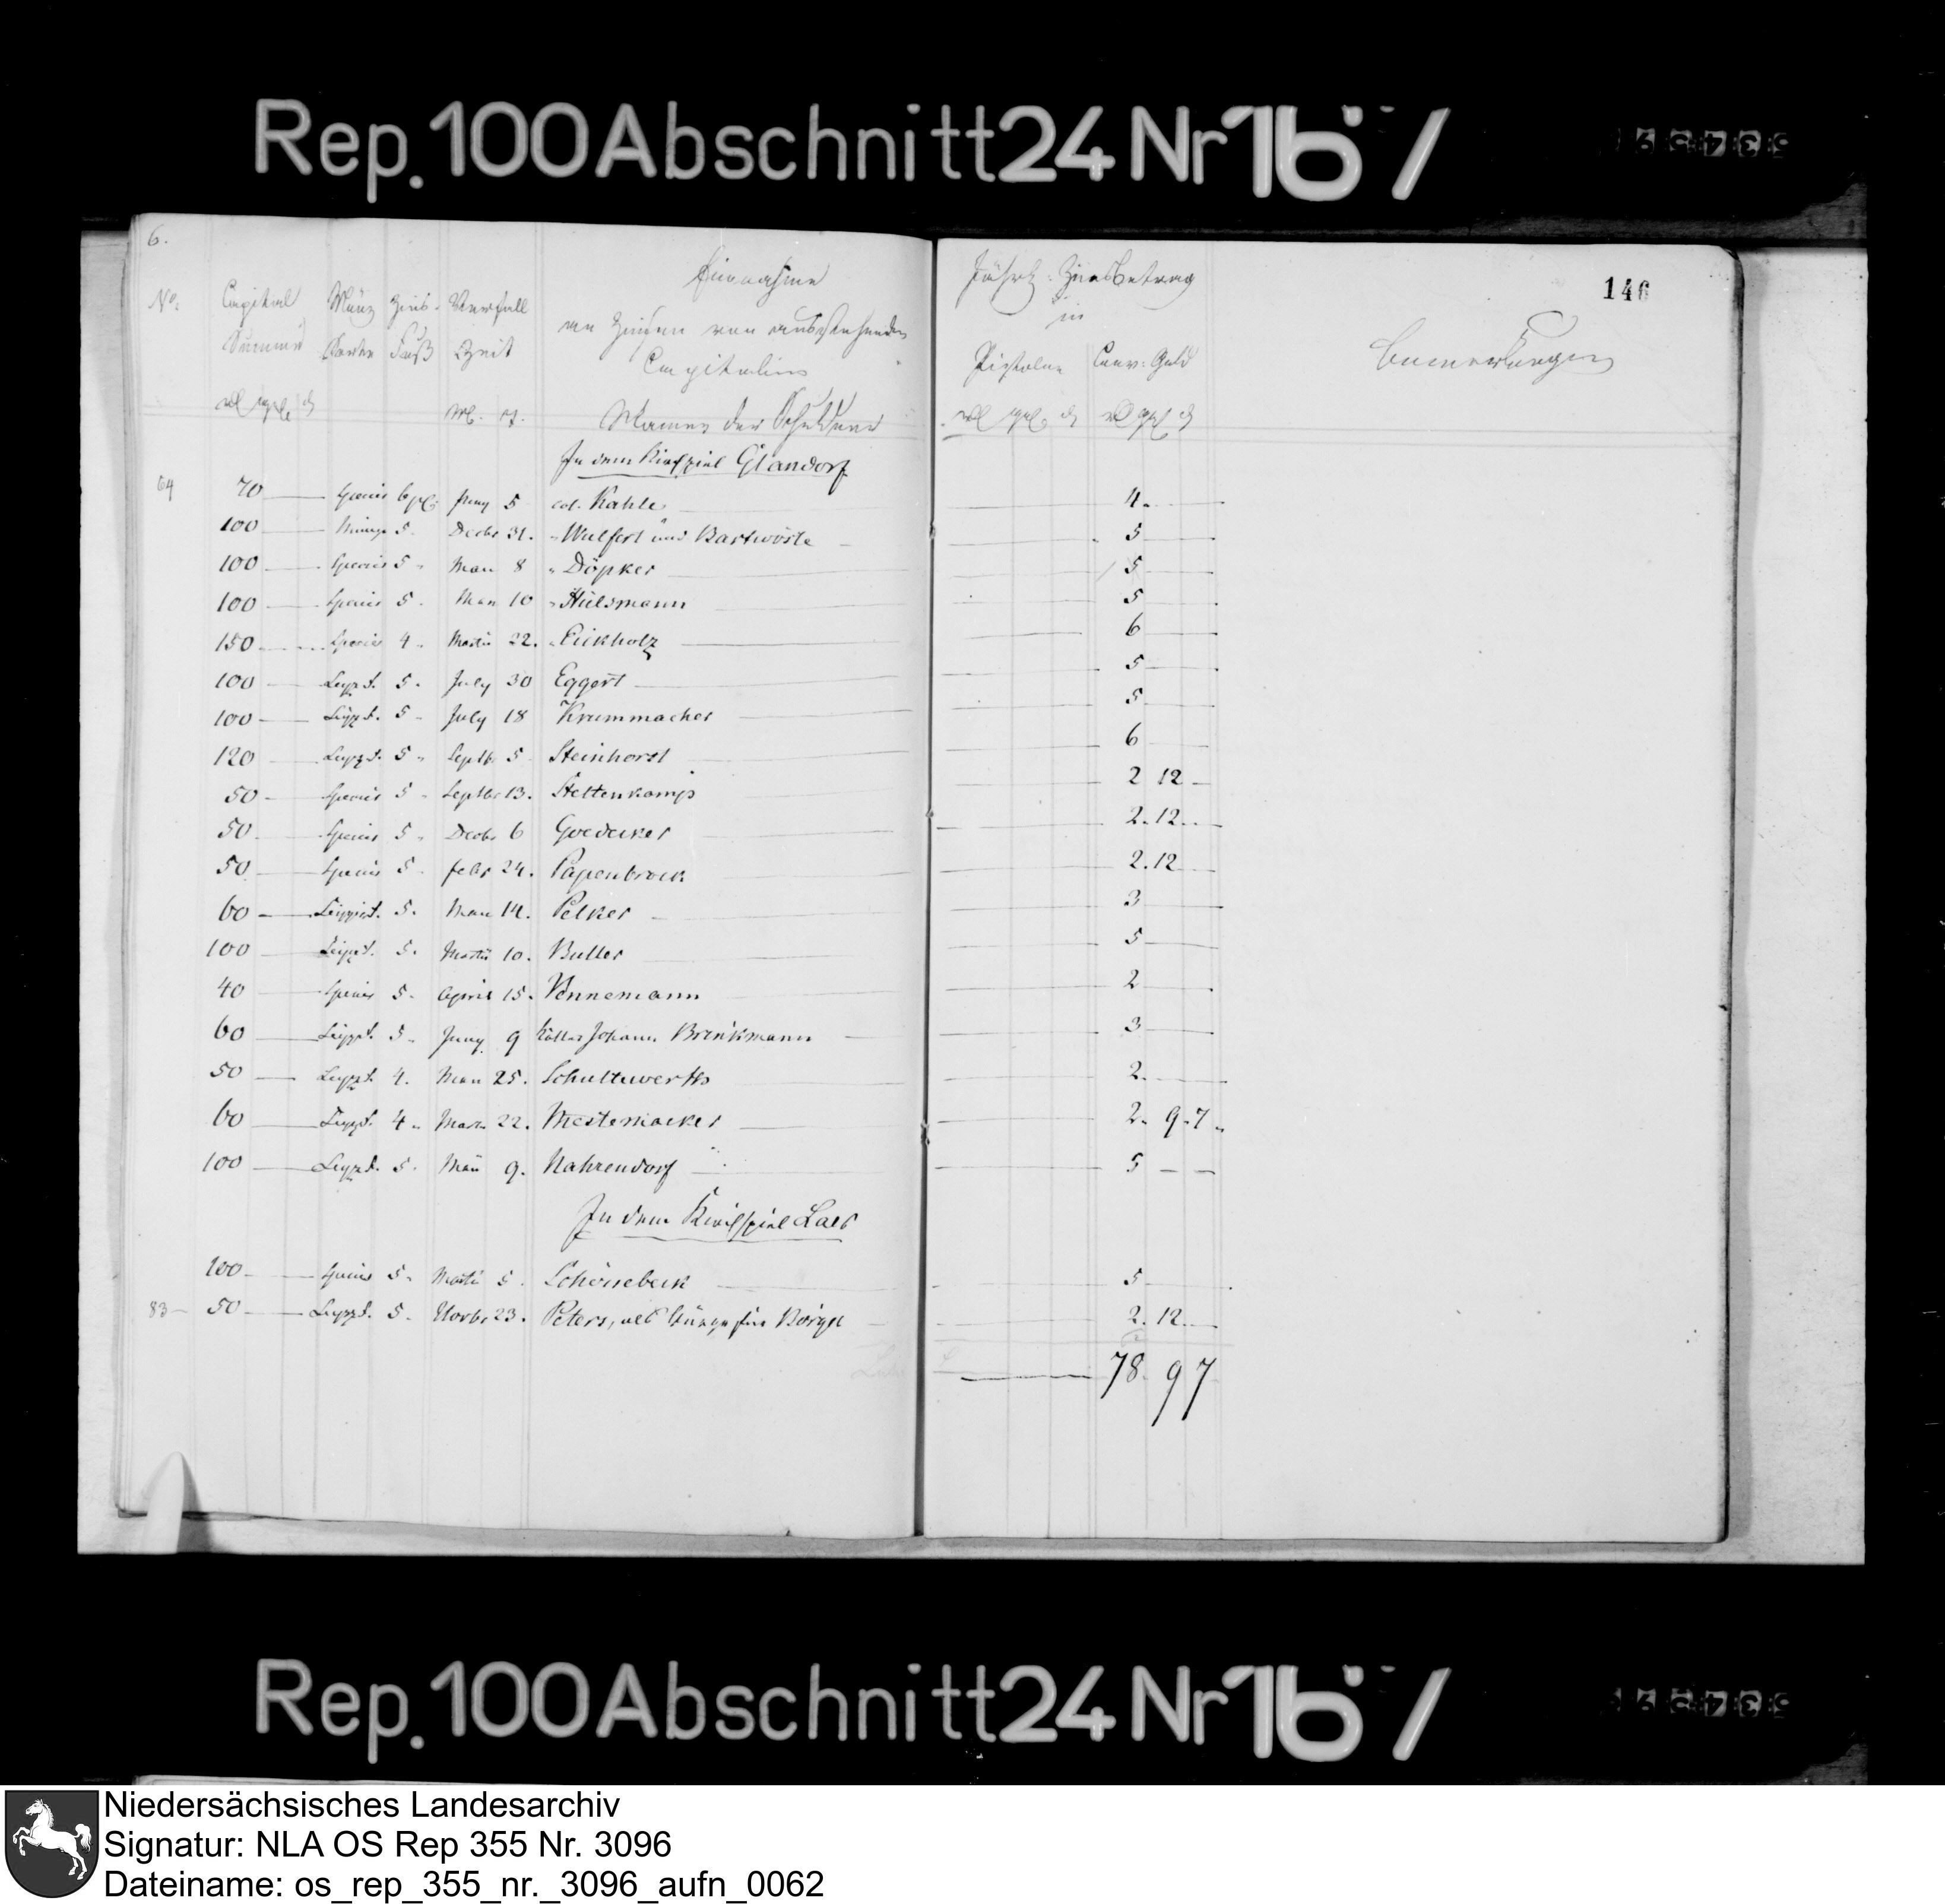 Rep. 100 Abschnitt 24 Nr 167
6.
146
Einnahme
an Zinsen von ausstehenden
Capitalien
Namen der Schuldner
No. Capital Summe Münz Sorte Zins Fuß Verfall Zeit
Jährl: Zinsbetrag
in
Pistolen Conv: Geld
Bemerkungen
M. T.
In dem Kirchspiel Glandorf
64 70 Species 6 Juny 5 col. Kahle 4.
100 Münze 5. Decbr 31. " Wulfert und Bartwöste 5
100 Species 5 " Man 8 " Döpker 5
100 Species 5. Man 10 " Hülsmann 5
150 Species 4 " Martii 22. " Eickholz 6
100 5. July 30 Eggert 5
100 5 - July 18 Krummacher 5
120 5 " Septbr 5 Steinhorst 6
50 Species 5 - Septbr 13. Stettenkamp 2 12
50 Species 5 " Decbr 6 Goedecker 2. 12
50 Species 5 - Febr 24. Papenbrock 2. 12
60 5. Man 14. Pelker 3
100 5. Martii 10. Butler 5
40 Species 5. April 15. Vennemann 2
60 5. Juny 9 Johann Brinkmann 3
50 4. Man 25. Schultwerth 2.
60 4 " 22. Mestemacker 2. 9. 7
100 5. 9. Nahrendorf 5
In dem Kirchspiel Laer
100 Species 5. Martii 5. Schönebeck 5
83 50 5. Novbr 23. Peters, als Bürge für Börgel 2. 12
78. 9 7
Rep. 100 Abschnitt 24 Nr 167
Niedersächsisches Landesarchiv
Signatur: NLA OS Rep 355 Nr. 3096
Dateiname: os_rep_355_nr._3096_aufn_0062